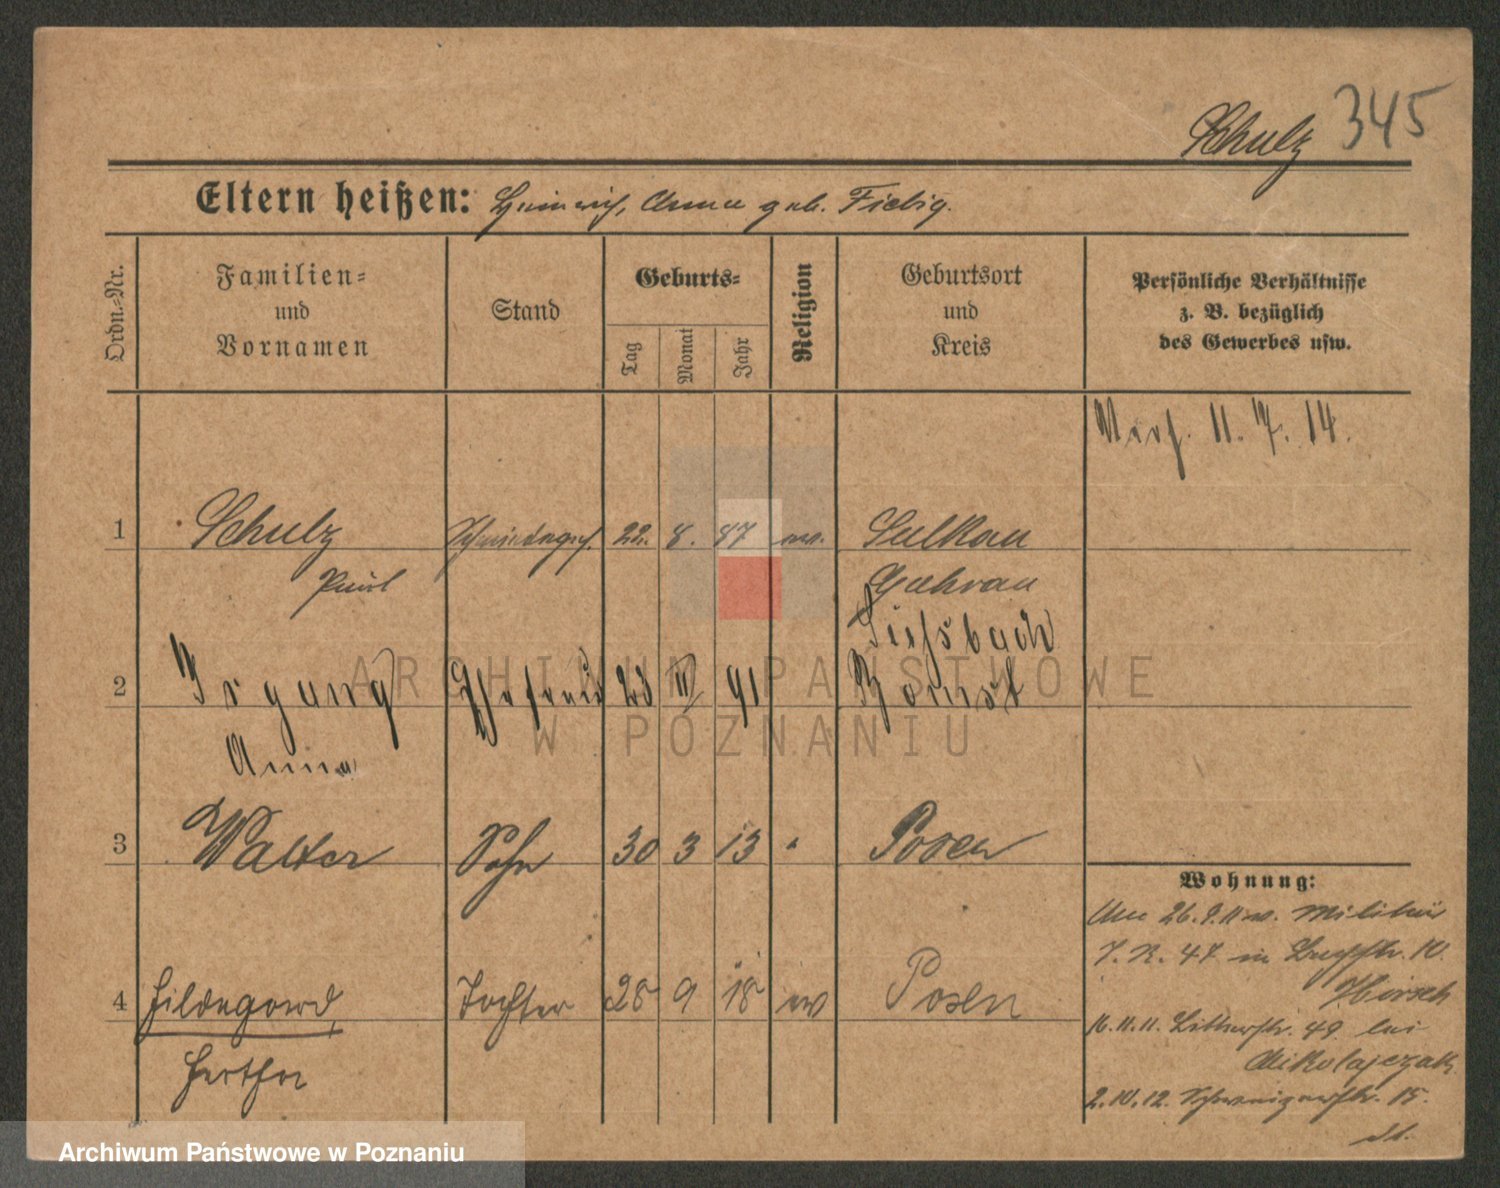 Schulz 345
Eltern heißen: Heinrich, Anna geb. Fiebig.
Ordn.-Nr.
Familien-
und
Vornamen
Stand
Geburts-
Tag
Monat
Jahr
Religion
Geburtsort
und
Kreis
Persönliche Verhältnisse
z. B. bezüglich
des Gewerbes usw.
11. 7. 14.
1 Schulz Schmiedeges. 22. 8. 87 ev. Sulkau
Paul Guhrau
2 Irgang Ehefrau 23 91 Bomst
Anna
3 Walter Sohn 30 3 13 " Posen
4 Hildegard Tochter 28 9 18 ev Posen
Hertha
Wohnung:
26. 9. 11 v. Militär
J. R. 47 in 10.
Hirsch
16. 11. 11. 49 bei
Mikolajczak
2. 10. 12. 15.
ARCHIWUM PAŃSTWOWE
W POZNANIU
Archiwum Państwowe w Poznaniu